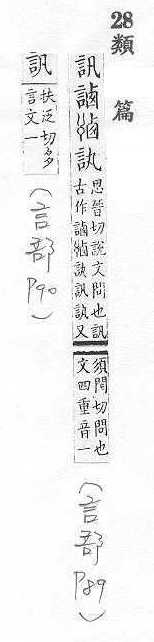 28類篇
訊 思晉切說文問也訊
古作 訊 又
須閏切問也
文四重音一
(言部 P89)
扶泛切多
言文一
(言部 P90)